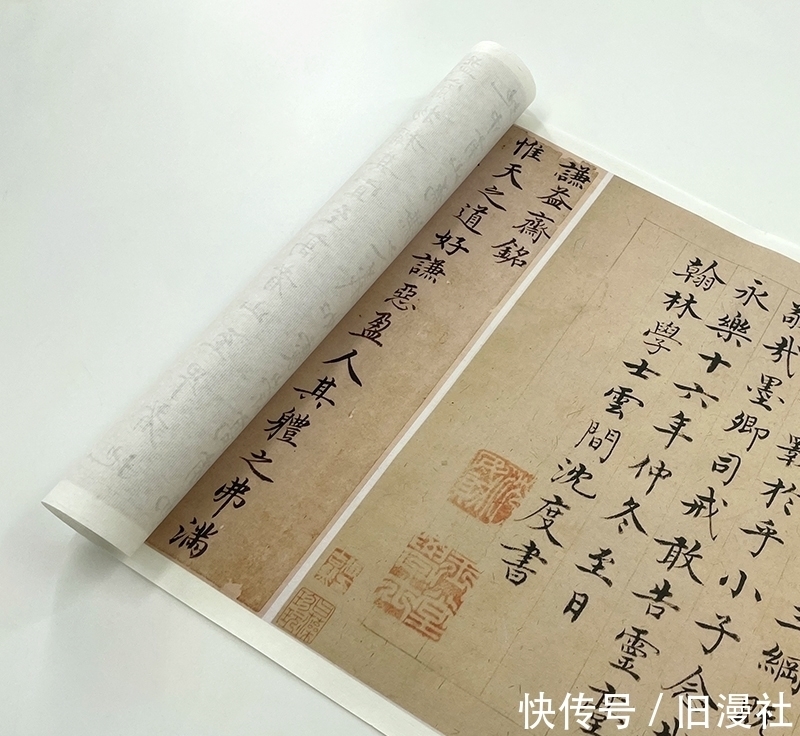 三綱
斁於乎小子念
哉墨卿司戒敢告靈臺
永樂十六年仲冬至日
翰林學士雲間沈度書
謙益齋銘
惟天之道好謙惡盈人其體之弗滿
快传号 / 旧漫社